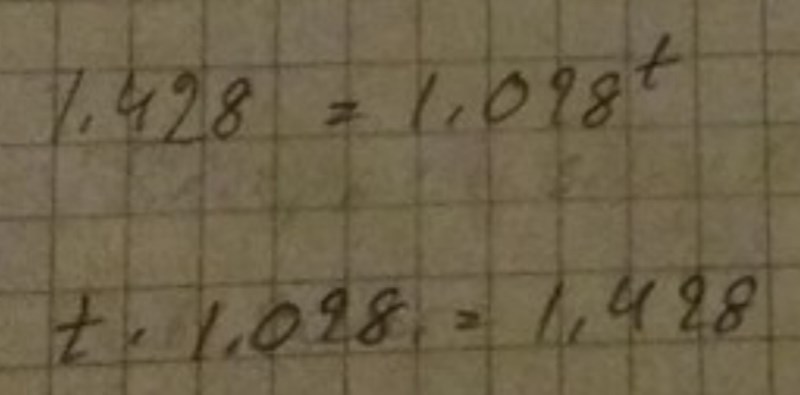 1.428 = 1.098^t
t · 1.098 = 1,428